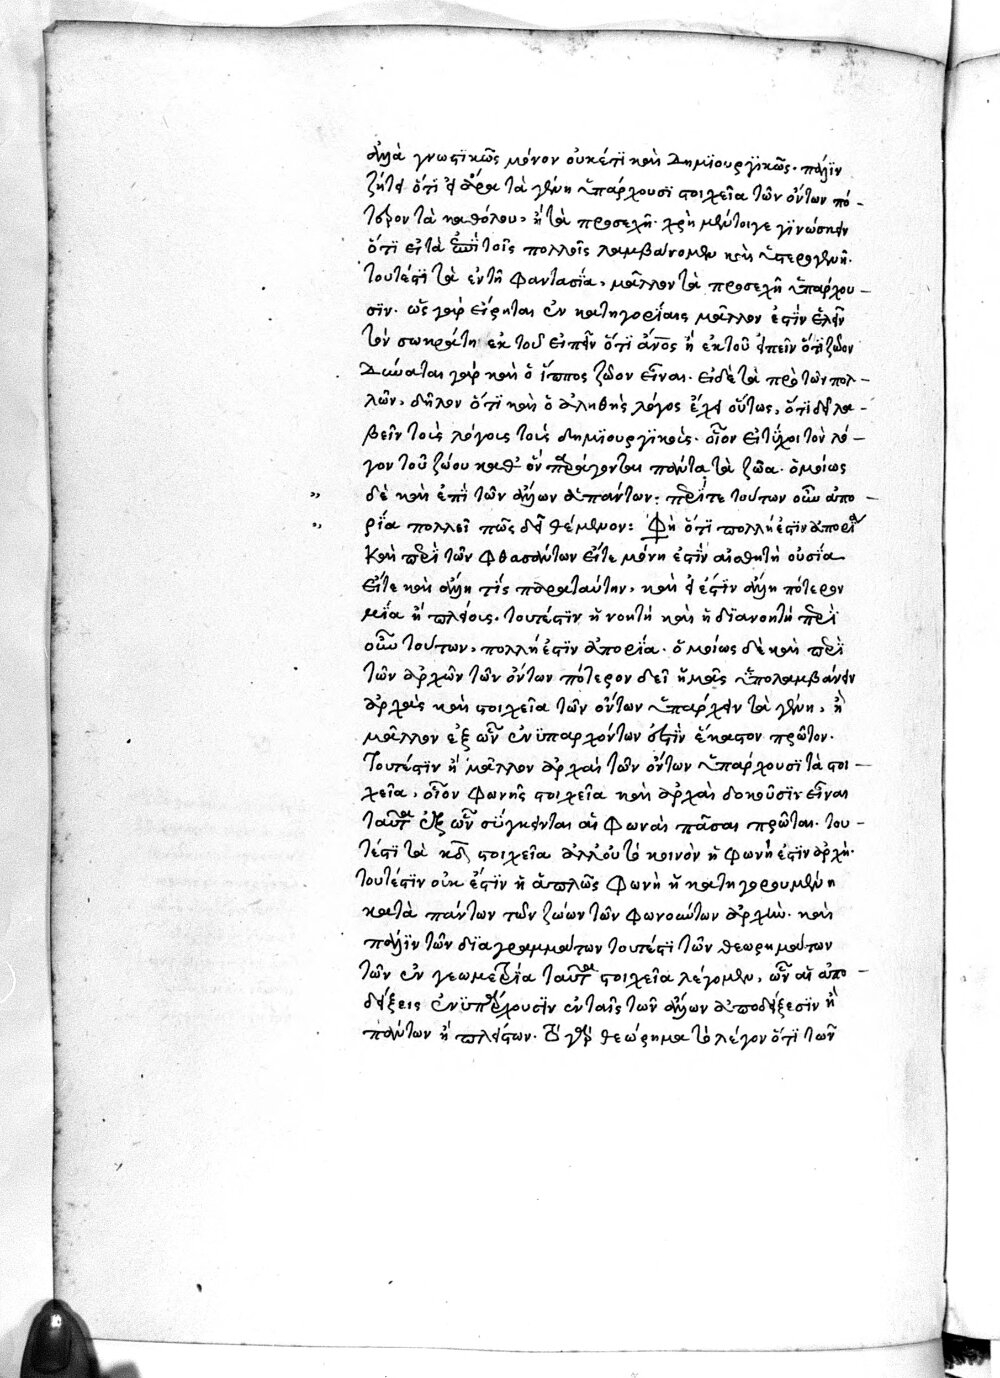 ἀλλὰ γνωστικῶς μόνον οὐκέτι καὶ δημιουργικῶς. πάλιν
ζητεῖ ὅτι εἰ ἄρα τὰ γένη ὑπάρχουσι στοιχεῖα τῶν ὄντων πό-
τερον τὰ καθόλου, ἢ τὰ προσεχῆ. χρὴ μέντοιγε γινώσκειν
ὅτι εἰ τὰ ἐπὶ τοῖς πολλοῖς λαμβάνομεν καὶ ὑστερογενῆ.
τουτέστι τὰ ἐν τῇ φαντασίᾳ, μᾶλλον τὰ προσεχῆ ὑπάρχου-
σιν. ὡς γὰρ εἴρηται ἐν κατηγορίαις μᾶλλον ἐστὶν ἑλεῖν
τὸν σωκράτη ἐκ τοῦ εἰπεῖν ὅτι ἄνος ἢ ἐκ τοῦ εἰπεῖν ὅτι ζῶον
δύναται γὰρ καὶ ὁ ἵππος ζῶον εἶναι. εἰ δὲ τὰ πρὸ τῶν πολ-
λῶν, δῆλον ὅτι καὶ ὁ ἀληθὴς λόγος ἔχει οὕτως, ὅτι δεῖ λα-
βεῖν τοὺς λόγους τοὺς δημιουργικούς. οἷον εἰ τύχοι τὸν λό-
γον τοῦ ζώου καθ' ὃν παράγονται πάντα τὰ ζῶα. ὁμοίως
" δὲ καὶ ἐπὶ τῶν ἄλλων ἁπάντων: περί τε τούτων οὖν ἀπο-
" ρία πολλὴ πῶς δεῖ θέμενον: Φη ὅτι πολλή ἐστιν ἀπορία
καὶ περὶ τῶν φθασάντων εἴτε μόνη ἐστὶν αἰσθητὴ οὐσία
εἴτε καὶ ἄλλη τις παρὰ ταύτην, καὶ εἰ ἔστιν ἄλλη πότερον
μία ἢ πλείους. τουτέστιν ἡ νοητὴ καὶ ἡ διανοητή περὶ
οὖν τούτων, πολλή ἐστιν ἀπορία. ὁμοίως δὲ καὶ περὶ
τῶν ἀρχῶν τῶν ὄντων πότερον δεῖ ἡμᾶς ὑπολαμβάνειν
ἀρχὰς καὶ στοιχεῖα τῶν ὄντων ὑπάρχειν τὰ γένη, ἢ
μᾶλλον ἐξ ὧν ἐνυπαρχόντων ἐστὶν ἕκαστον πρῶτον.
τουτέστιν ἢ μᾶλλον ἀρχαὶ τῶν ὄντων ὑπάρχουσι τὰ στοι-
χεῖα, οἷον φωνῆς στοιχεῖα καὶ ἀρχαὶ δοκοῦσιν εἶναι
ταῦτα ἐξ ὧν σύγκεινται αἱ φωναὶ πᾶσαι πρῶται. του-
τέστι τὰ κδ στοιχεῖα ἀλλ' οὐ τὸ κοινὸν ἡ φωνή ἐστιν ἀρχή.
τουτέστιν οὐκ ἔστιν ἡ ἁπλῶς φωνὴ ἡ κατηγορουμένη
κατὰ πάντων τῶν ζώων τῶν φωνούντων ἀρχή. καὶ
πάλιν τῶν διαγραμμάτων τουτέστι τῶν θεωρημάτων
τῶν ἐν γεωμετρία ταῦτα στοιχεῖα λέγομεν, ὧν αἱ ἀπο-
δείξεις ἐνυπάρχουσιν ἐν ταῖς τῶν ἄλλων ἀποδείξεσιν ἢ
πάντων ἢ πλείστων. τὸ γὰρ θεώρημα τὸ λέγον ὅτι τῶν